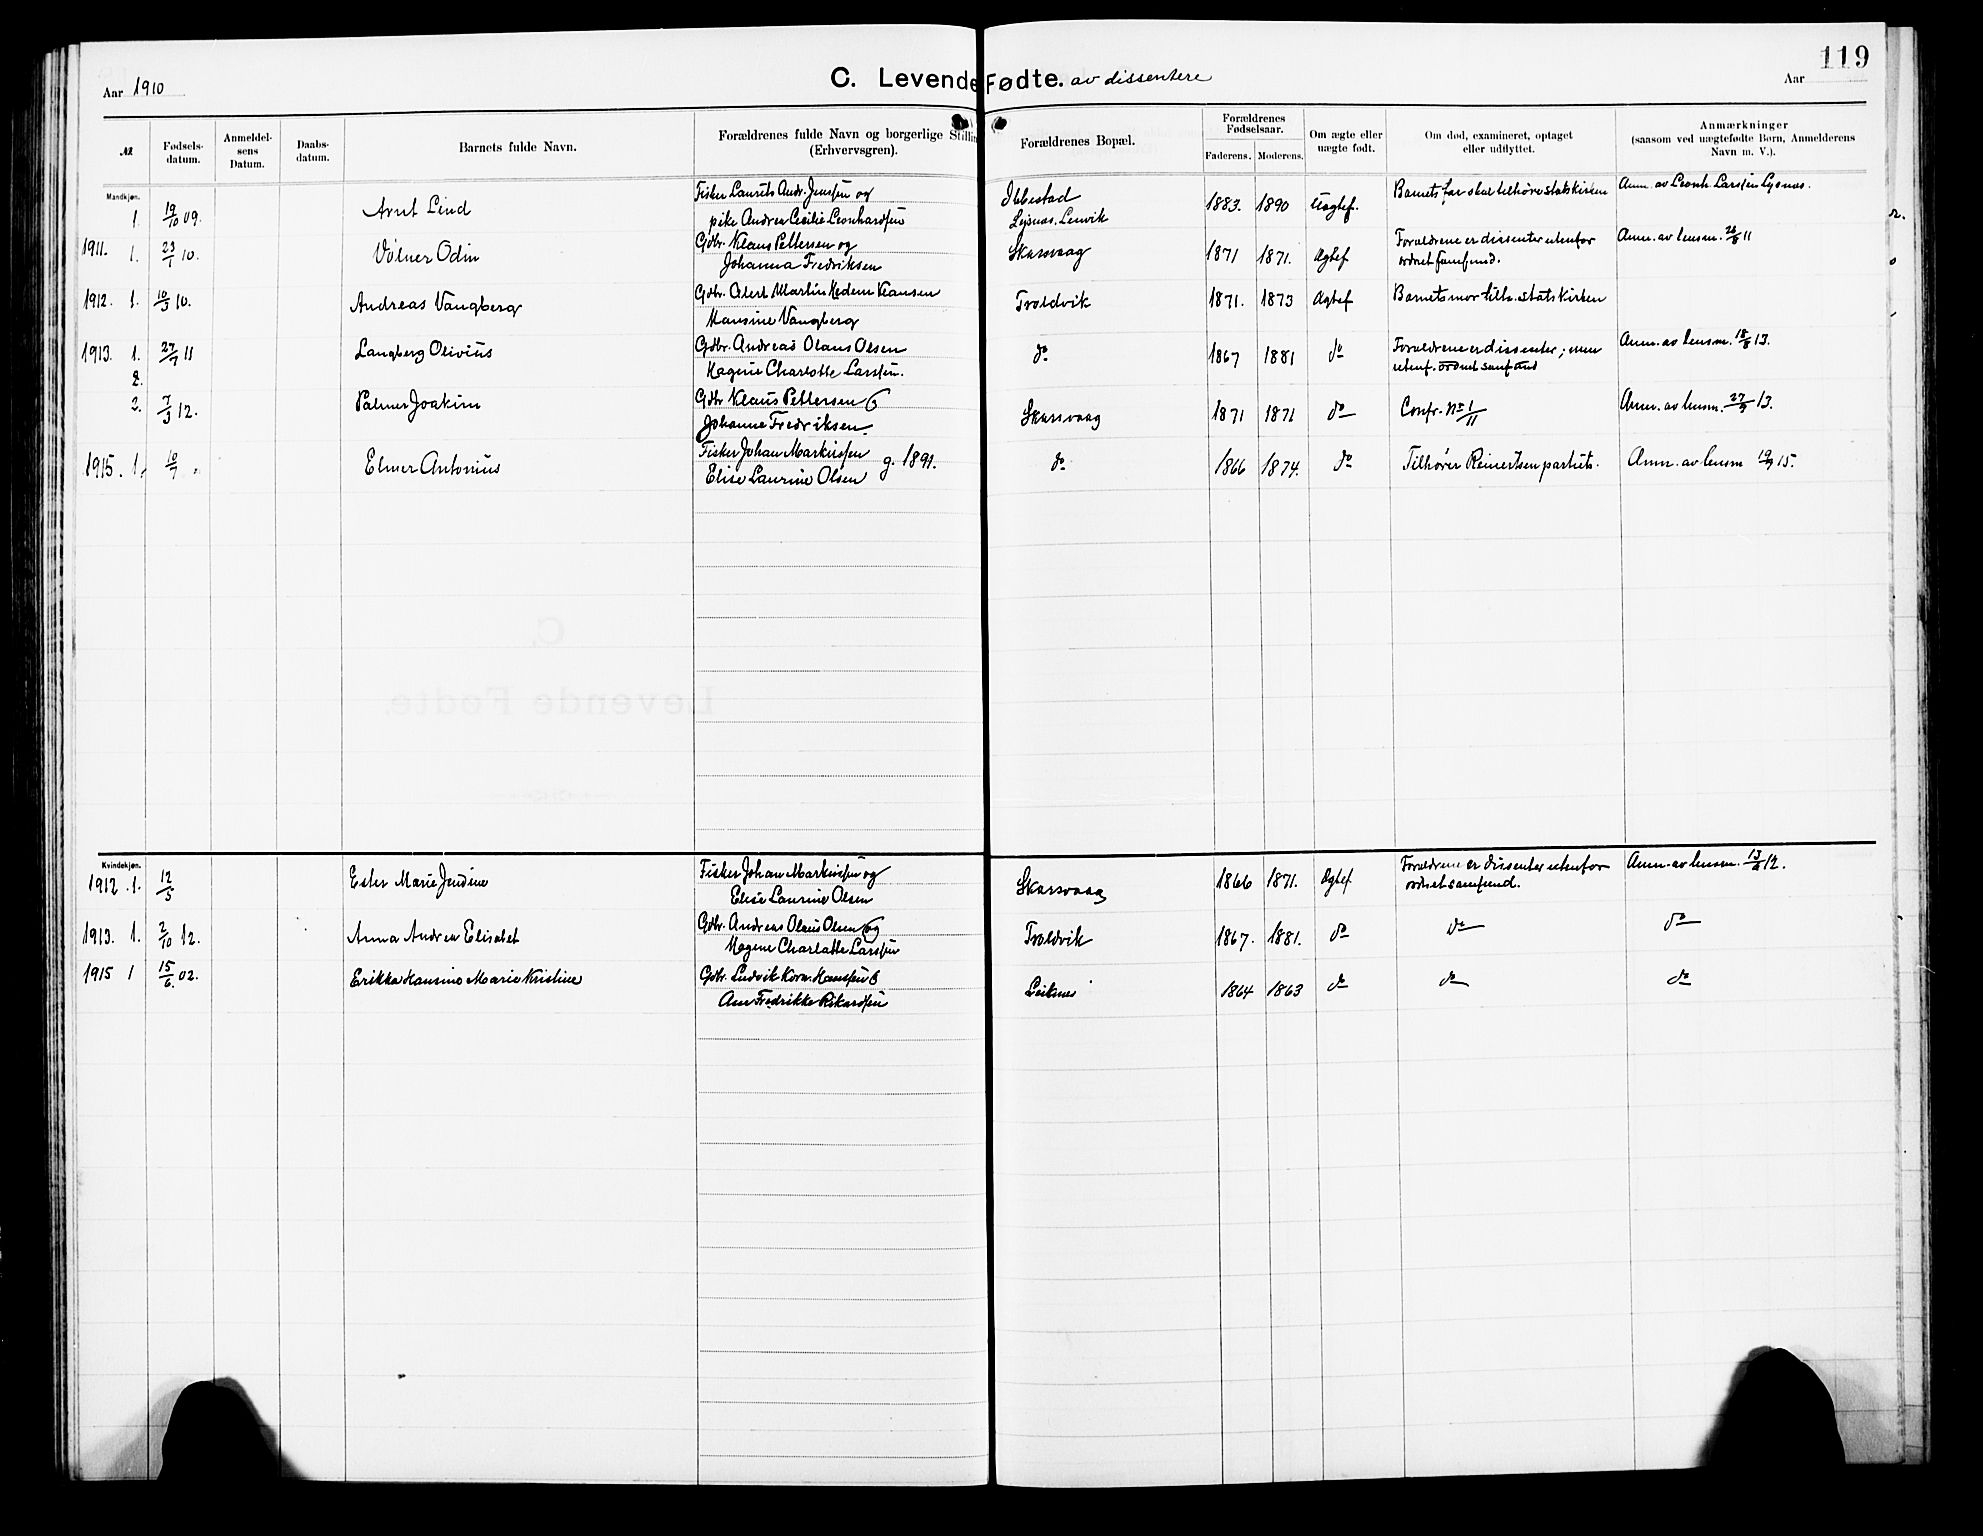 119
Aar 1910
C. Levende Fødte. av dissentere
Aar
№
Fødsels-
datum.
Anmeldel-
sens
Datum.
Daabs-
datum.
Barnets fulde Navn.
Forældrenes fulde Navn og borgerlige Stilling
(Erhvervsgren).
Forældrenes Bopæl.
Forældrenes
Fødselsaar.
Faderens.
Moderens.
Om ægte eller
uægte født.
Om død, examineret, optaget
eller udflyttet.
Anmærkninger
(saasom ved uægtefødte Børn, Anmelderens
Navn m. V.).
Mandkjøn.
1. 19/10 09. Arnt Lind
Fisker Laurits Andr. Jenssen og
pike Andrea Cecilie Leonhardsen
Ibbestad
Lysnes. Lenvik
1883. 1890 Uægtef.
Barnets far skal tilhøre statskirken
Anm. av Leonh. Larssen Lysnes.
1911. 1. 23/1 10. Volner Odin
Gdbr. Klaus Pettersen og
Johanna Fredriksen
Skarsvaag 1871 1871. Ægtef
Forældrene er dissenter utenfor
ordnet samfund.
Anm. av lensm. 26/8 11
1912. 1. 10/3 10. Andreas Vangberg
Gdbr. Edert Martin Hedem Klausen
Hansine Vangberg
Troldvik 1871. 1873 Ægtef
Barnets mor tilh. statskirken
1913. 1. 27/7 11 Langberg Olivius
2.
Gdbr. Andreas Olaus Olsen
Hagine Charlotte Larssen.
do 1867 1881 do
Forældrene er dissenter; men
utenf. ordnet samfund
Anm. av lensm. 18/8 13.
2. 7/3 12. Palmer Joakim
Gdbr Klaus Pettersen &
Johanne Fredriksen.
Skarsvaag 1871 1871 do
Confr. Nr 1/11
Anm. av lensm. 27/9 13.
1915. 1. 10/7 Elmer Antonius
Fisker Johan Markussen
Elise Laurine Olsen g. 1891.
do 1866 1874. do
Tilhører Reinertsen partiets.
Anm. av lensm 19/9 15.
C.
Levende Fødte.
Kvindekjøn.
1912. 1. 12/5 Ester Marie Jendine
Fisker Johan Markussen og
Elise Laurine Olsen
Skarsvaag 1866 1871. Ægtef
Forældrene er dissenter utenfor
ordnet samfund.
Anm. av lensm. 13/8 12.
1913. 1. 2/10 12. Anna Andrea Elisabet
Gdbr. Andreas Olaus Olsen og
Hagine Charlotte Larssen
Troldvik 1867. 1881. do do do
1915 1 15/6. 02. Erikka Hansine Marie Kristine
Gdbr. Ludvik Korn. Hanssen &
Ane Fredrikke Rikardsen
Leiknes 1864 1863 do do do